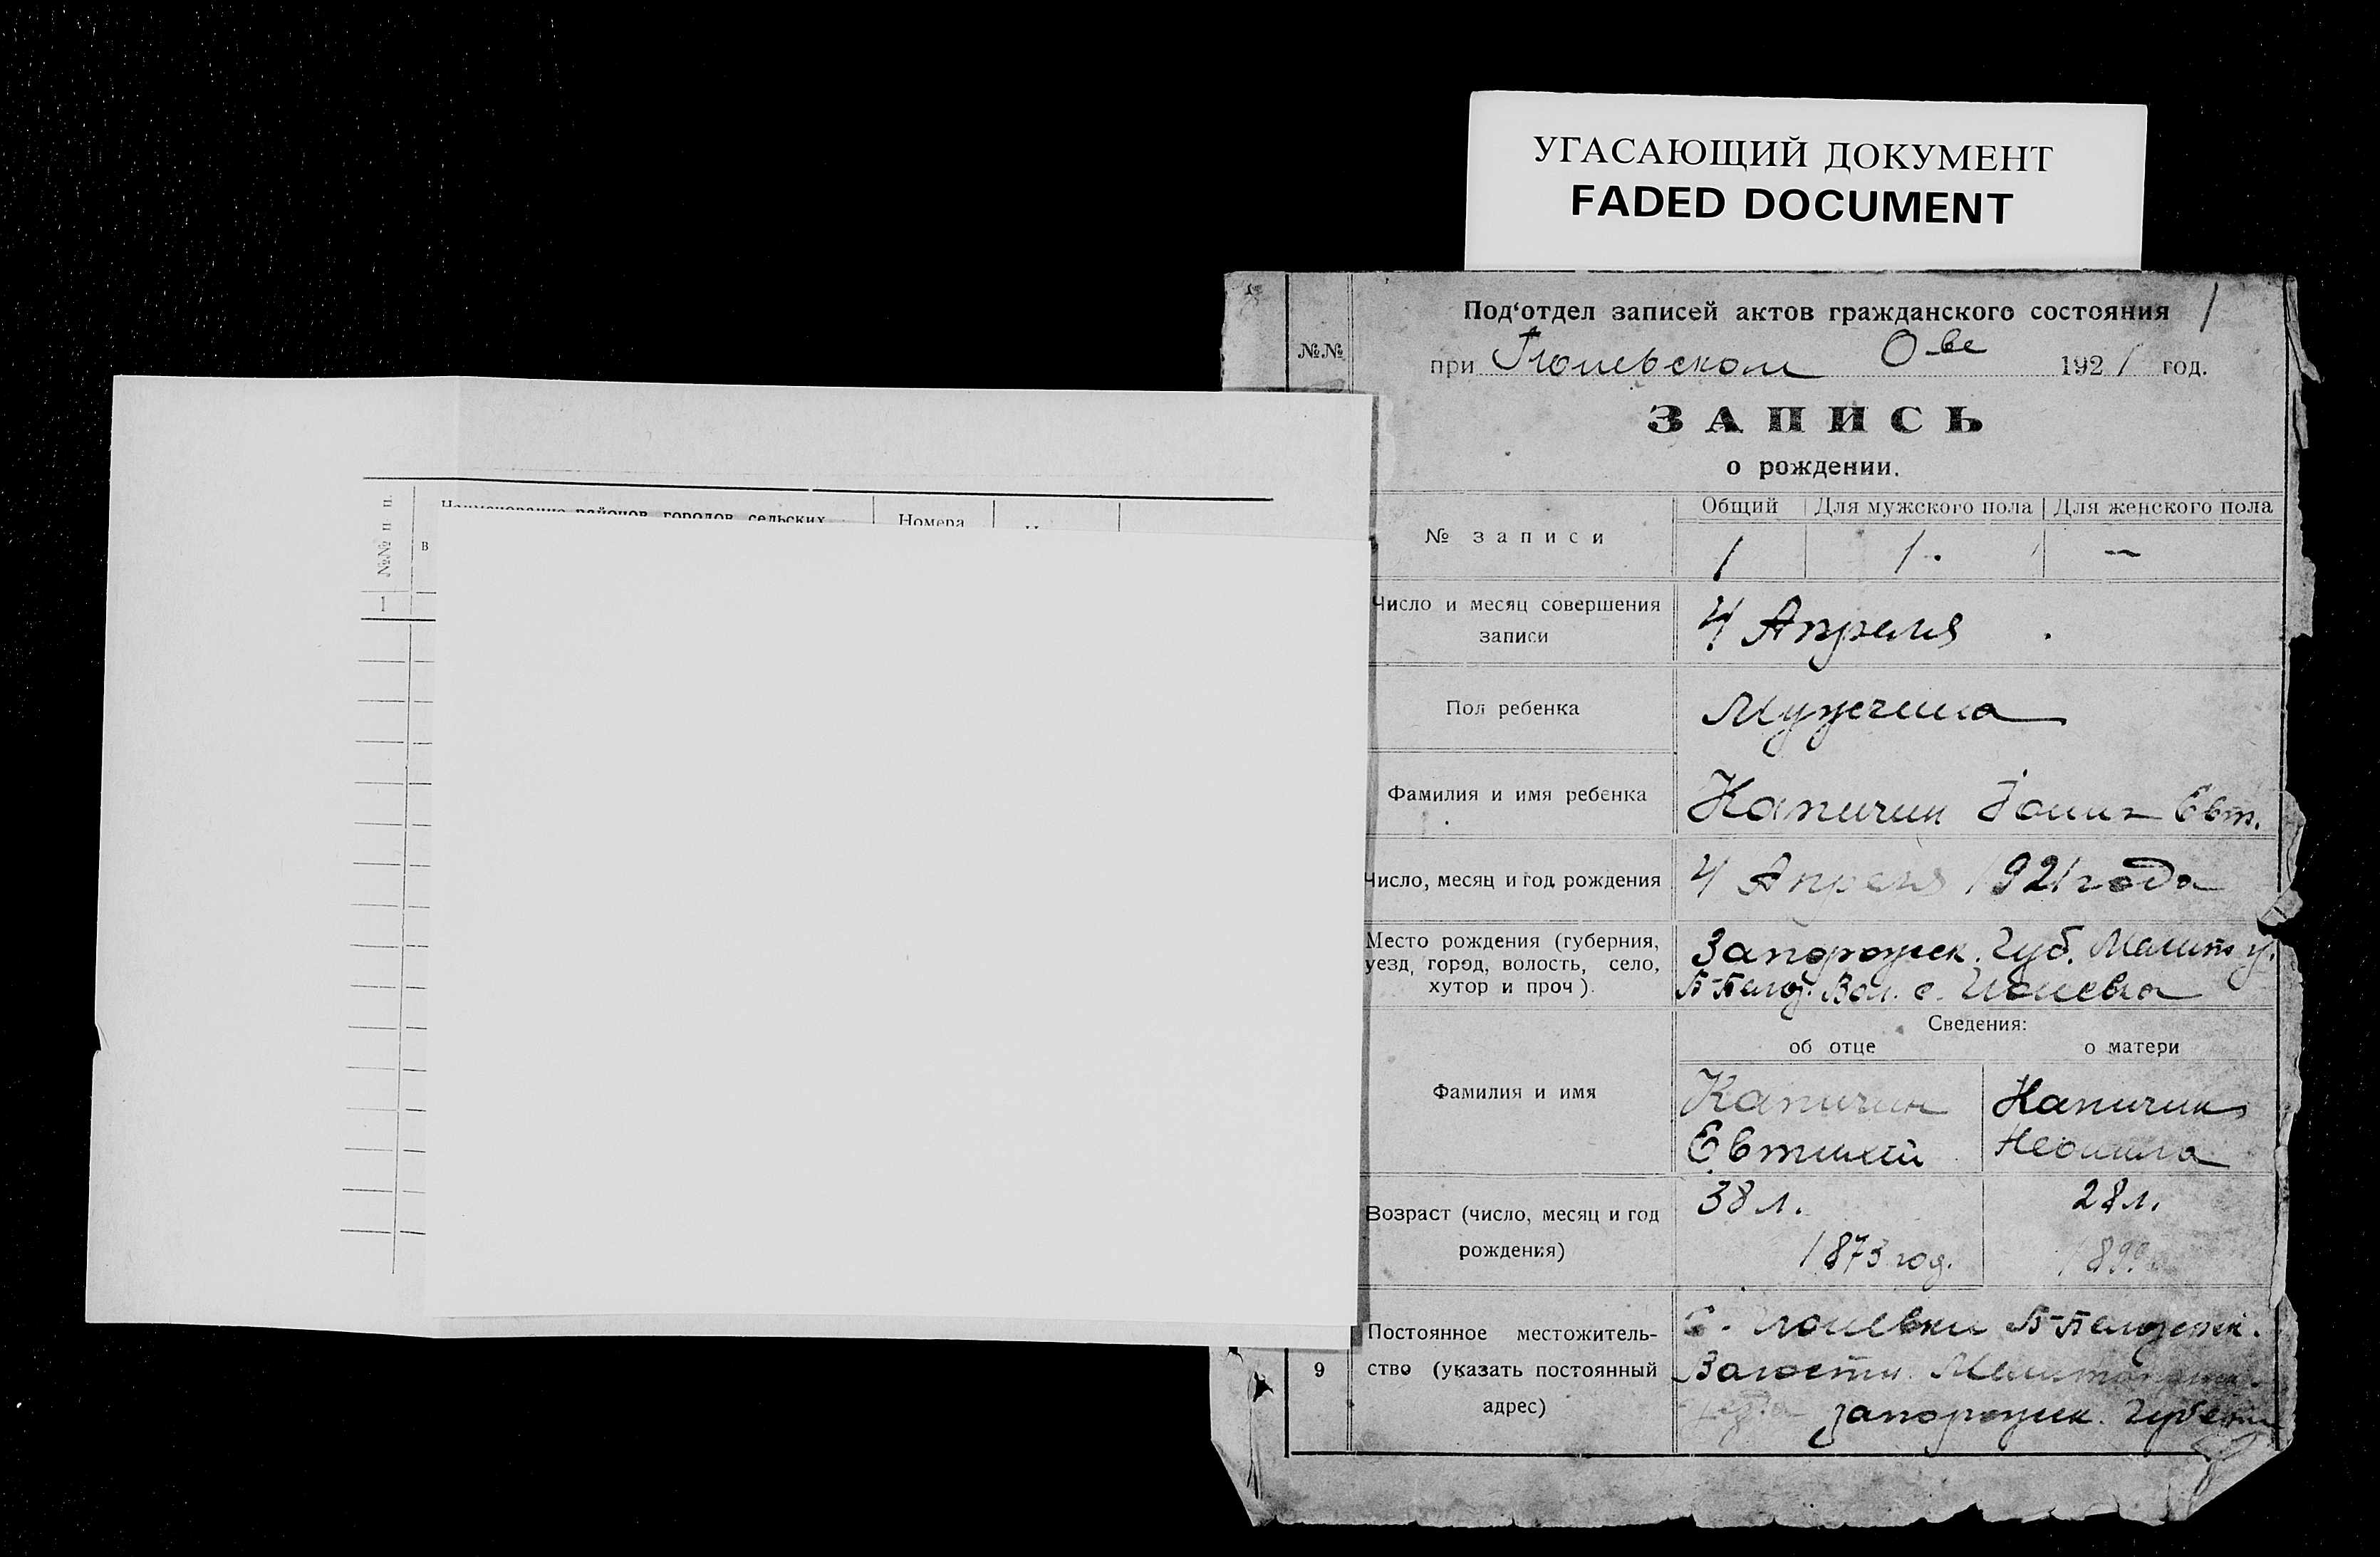 УГАСАЮЩИЙ ДОКУМЕНТ
FADED DOCUMENT
№№ п п.
Наименование районов, городов, сельских
Номера
в
1
Под‘отдел записей актов гражданского состояния 1
№№
при О-ве 1921 год.
ЗАПИСЬ
о рождении.
№ записи
Общий Для мужского пола Для женского пола
1 1. —
Число и месяц совершения
записи
4 Апреля
Пол ребенка
Мужчина
Фамилия и имя ребенка
Капичин Евт.
Число, месяц и год рождения
4 Апреля 1921 года
Место рождения (губерния,
уезд, город, волость, село,
хутор и проч).
Запорожск. Губ. Мелит у.
Б-Белоз. Вол. с.
Сведения:
об отце о матери
Фамилия и имя
Капичин
Евтихий
Капичина
Неонила
Возраст (число, месяц и год
рождения)
38 л.
1873 год.
28 л.
9
Постоянное местожитель-
ство (указать постоянный
адрес)
С. Б-Белозерск.
Волости
Запорожск. Губерни